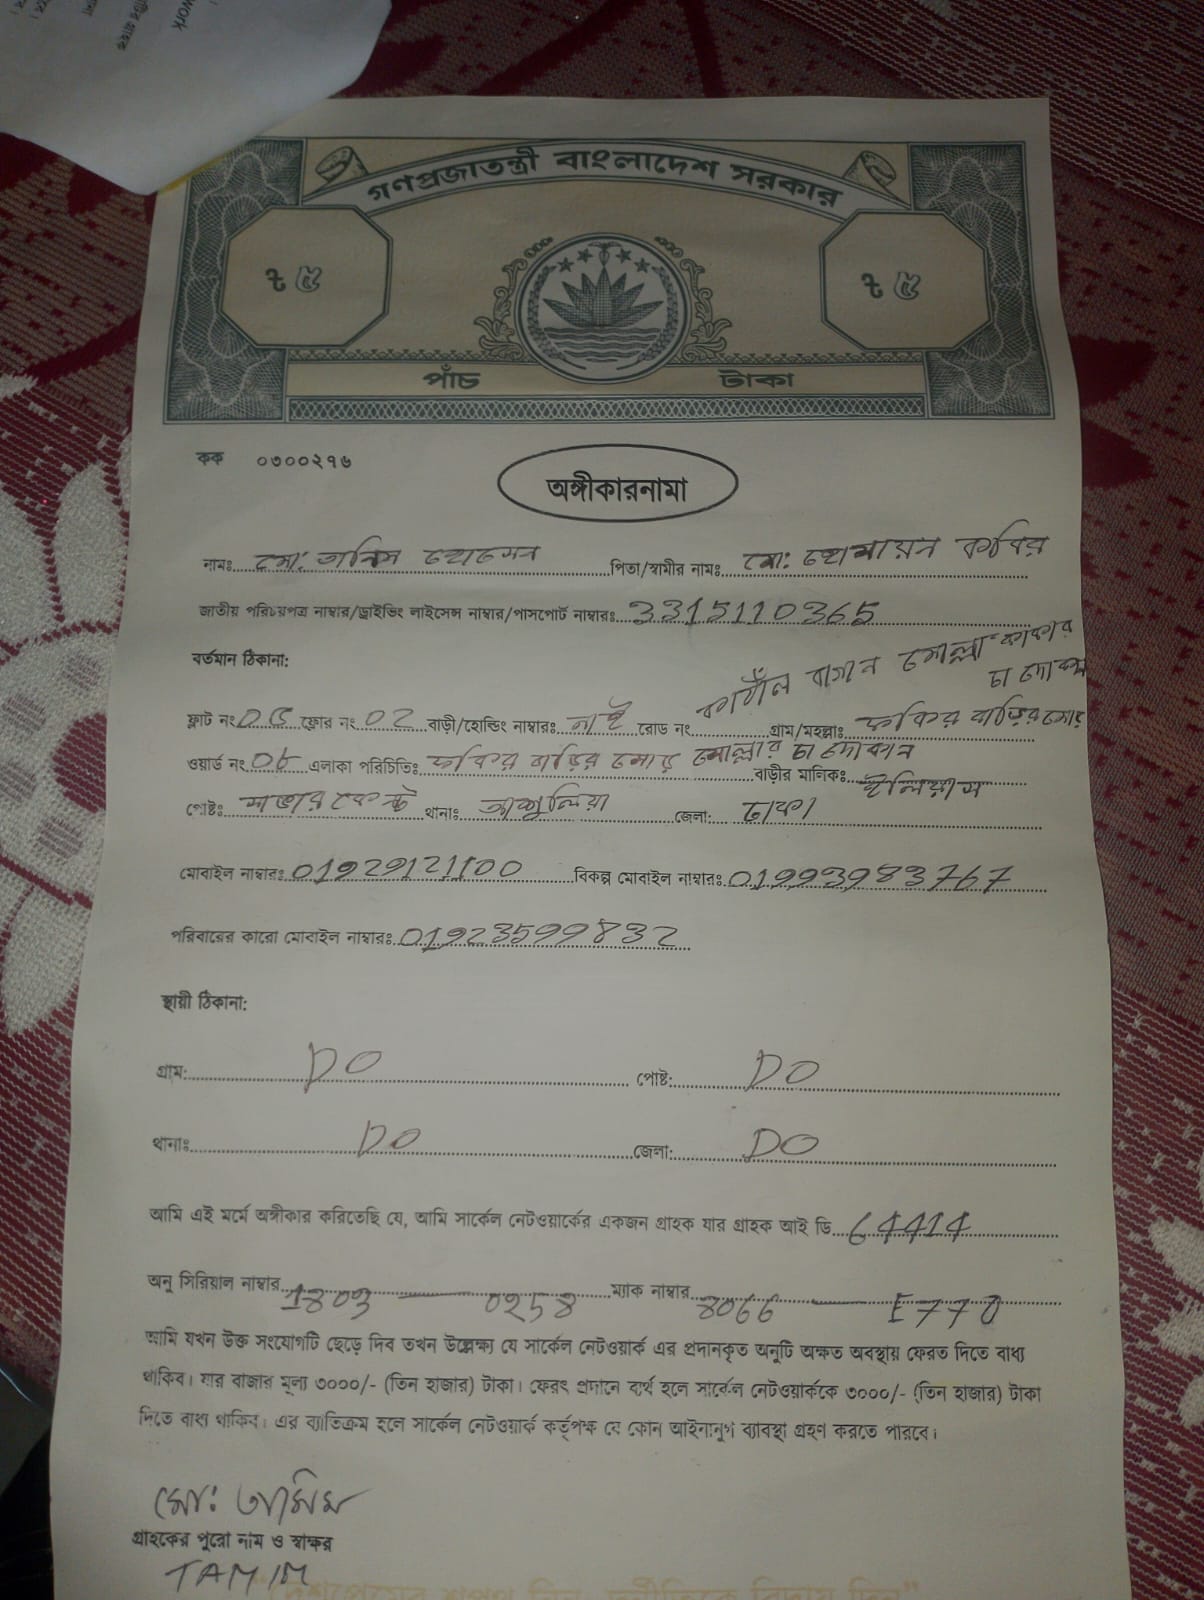 work
গণপ্রজাতন্ত্রী বাংলাদেশ সরকার
৳ ৫ ৳ ৫
পাঁচ টাকা
কক ০৩০০২৭৬
অঙ্গীকারনামা
নামঃ মো: তামিম হোসেন পিতা/স্বামীর নামঃ মো: হোমায়ন কবির
জাতীয় পরিচয়পত্র নাম্বার/ড্রাইভিং লাইসেন্স নাম্বার/পাসপোর্ট নাম্বারঃ 3315110365
বর্তমান ঠিকানা:
কাঠাঁল বাগান মোল্লা কাকার
চা দোকান
ফ্লাট নং ফ্লোর নং 02 বাড়ী/হোল্ডিং নাম্বারঃ নাই রোড নং গ্রাম/মহল্লাঃ ফকির বাড়ির মোড়
ওয়ার্ড নং এলাকা পরিচিতিঃ ফকির বাড়ির মোড় মোল্লার চা দোকান বাড়ীর মালিকঃ ইলিয়াস
পোষ্টঃ সাভার কেন্ট থানাঃ আশুলিয়া জেলা: ঢাকা
মোবাইল নাম্বারঃ 01929121100 বিকল্প মোবাইল নাম্বারঃ 01993983767
পরিবারের কারো মোবাইল নাম্বারঃ 01923599832
স্থায়ী ঠিকানা:
গ্রাম: DO পোষ্ট: DO
থানাঃ DO জেলা: DO
আমি এই মর্মে অঙ্গীকার করিতেছি যে, আমি সার্কেল নেটওয়ার্কের একজন গ্রাহক যার গ্রাহক আই ডি 64414
অনু সিরিয়াল নাম্বার 1803 — 0258 ম্যাক নাম্বার 8066 — E770
আমি যখন উক্ত সংযোগটি ছেড়ে দিব তখন উল্লেক্ষ্য যে সার্কেল নেটওয়ার্ক এর প্রদানকৃত অনুটি অক্ষত অবস্থায় ফেরত দিতে বাধ্য
থাকিব। যার বাজার মূল্য ৩০০০/- (তিন হাজার) টাকা। ফেরৎ প্রদানে ব্যর্থ হলে সার্কেল নেটওয়ার্ককে ৩০০০/- (তিন হাজার) টাকা
দিতে বাধ্য থাকিব। এর ব্যাতিক্রম হলে সার্কেল নেটওয়ার্ক কর্তৃপক্ষ যে কোন আইনানুগ ব্যাবস্থা গ্রহণ করতে পারবে।
মো: তামিম
গ্রাহকের পুরো নাম ও স্বাক্ষর
TAMIM
"দেশপ্রেমের শপথ নিন, দুর্নীতিকে বিদায় দিন"